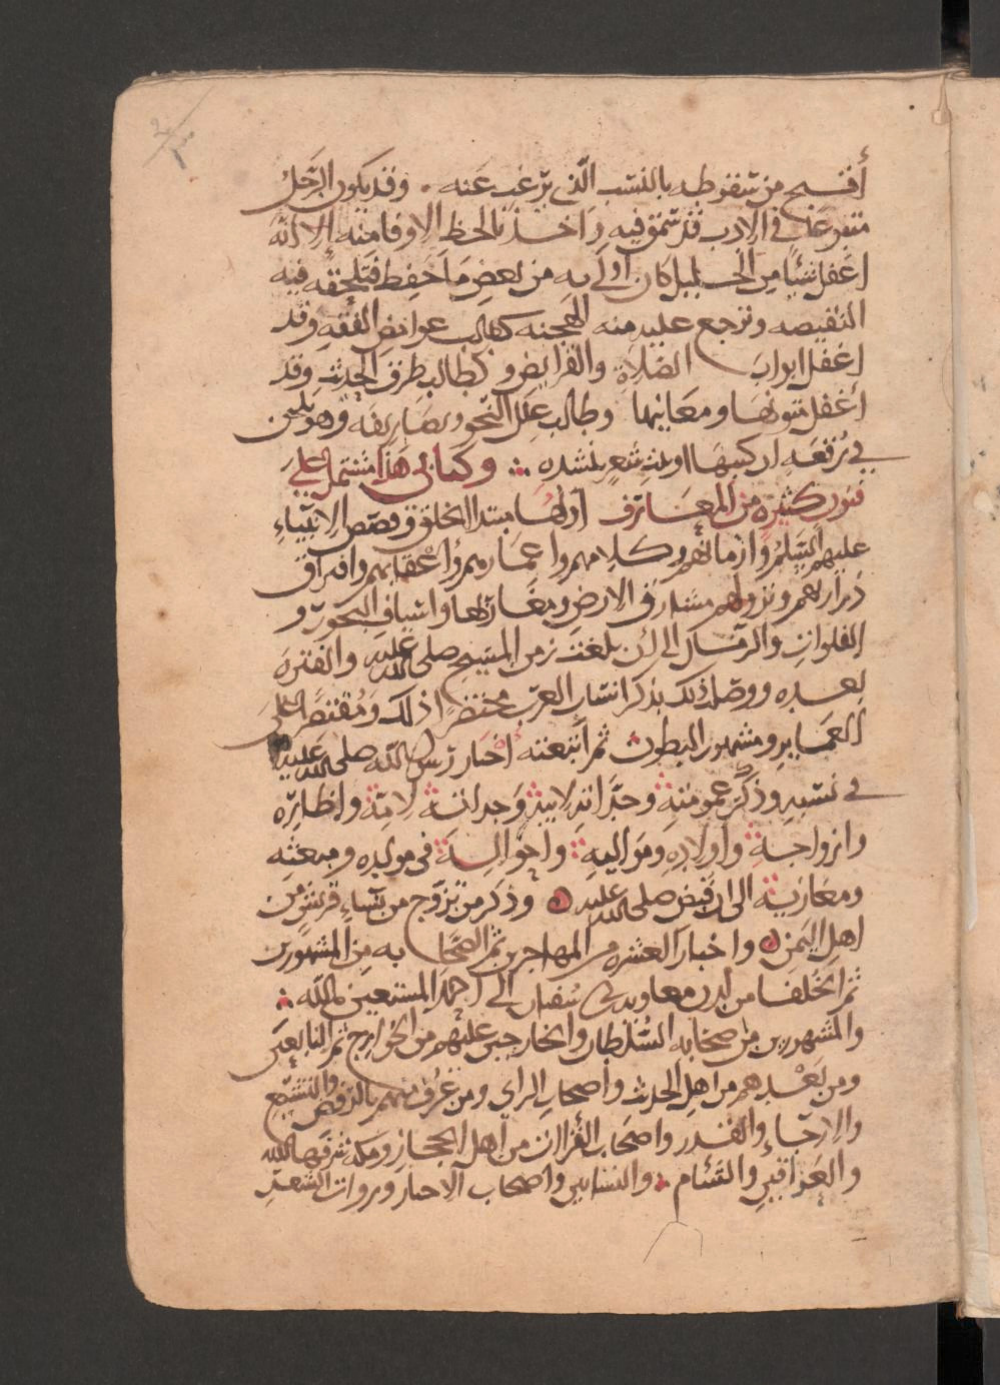 أقبح من سقوطه بالنسب الذي يرغب عنه . وقد يكون الرجل
متفرعا في الادب قد سمق فيه واخذ بالحظ الاوفا منه إلا انه
اغفل شيأ من الجليل كان اولى به من بعض ما حفظ فتلحقه فيه
النقيصه وترجع عليه منه الهجنه كطالب غوامض الفقه وقد
اغفل ابواب الصلاة والفرايض و كطالب طرق الحديث وقد
أغفل متونها ومعانيها وطالب علل النحو وتصاريفه وهو يلحن
في رقعه ان كتبها او بيت شعر ينشده ؞ وكتابي هذا مشتمل على
فنون كثيره من المعارف أولها مبتدا الخلق وقصص الانبياء
عليهم السلم وازمانهم وكلامهم واعمارهم وأعقابهم وافتراق
ذراريهم ونزولهم مشارق الارض ومغاربها واسياف البحور و
الفلوات والرمال الى ان بلغت زمن المسيح صلى الله عليه والفترة
بعده ووصلت ذلك بذكر انساب العرب مختصرا ذلك ومقتصرا على
العماير ومشهور البطون ثم أتبعته اخبار رسول الله صلى الله عليه
في نسبه وذكر عمومته وجداته لابيه وجداته لامه واظاره
وازواجه واولاده ومواليه واحواله في مولده ومبعثه
ومغازيه الى ان قبض صلى الله عليه وذكر من تزوج من نساء قريش من
اهل اليمن واخبار العشره من المهاجرين ثم الصحا به من المشهورين
ثم الخلفا من لدن معاويه بن سفيان الى احمد المستعين بالله ؞
والمشهورين من صحابه السلطان والخارجين عليهم من الخوارج ثم التابعين
ومن بعدهم من اهل الحديث وأصحاب الراي ومن عرف منهم بالرفض والتشيع
والارجاء والقدر واصحاب القراات من أهل الحجاز ومكة شرفها الله
والعراقين والشام ؞ والنسابين واصحاب الاخبار وروات الشعر